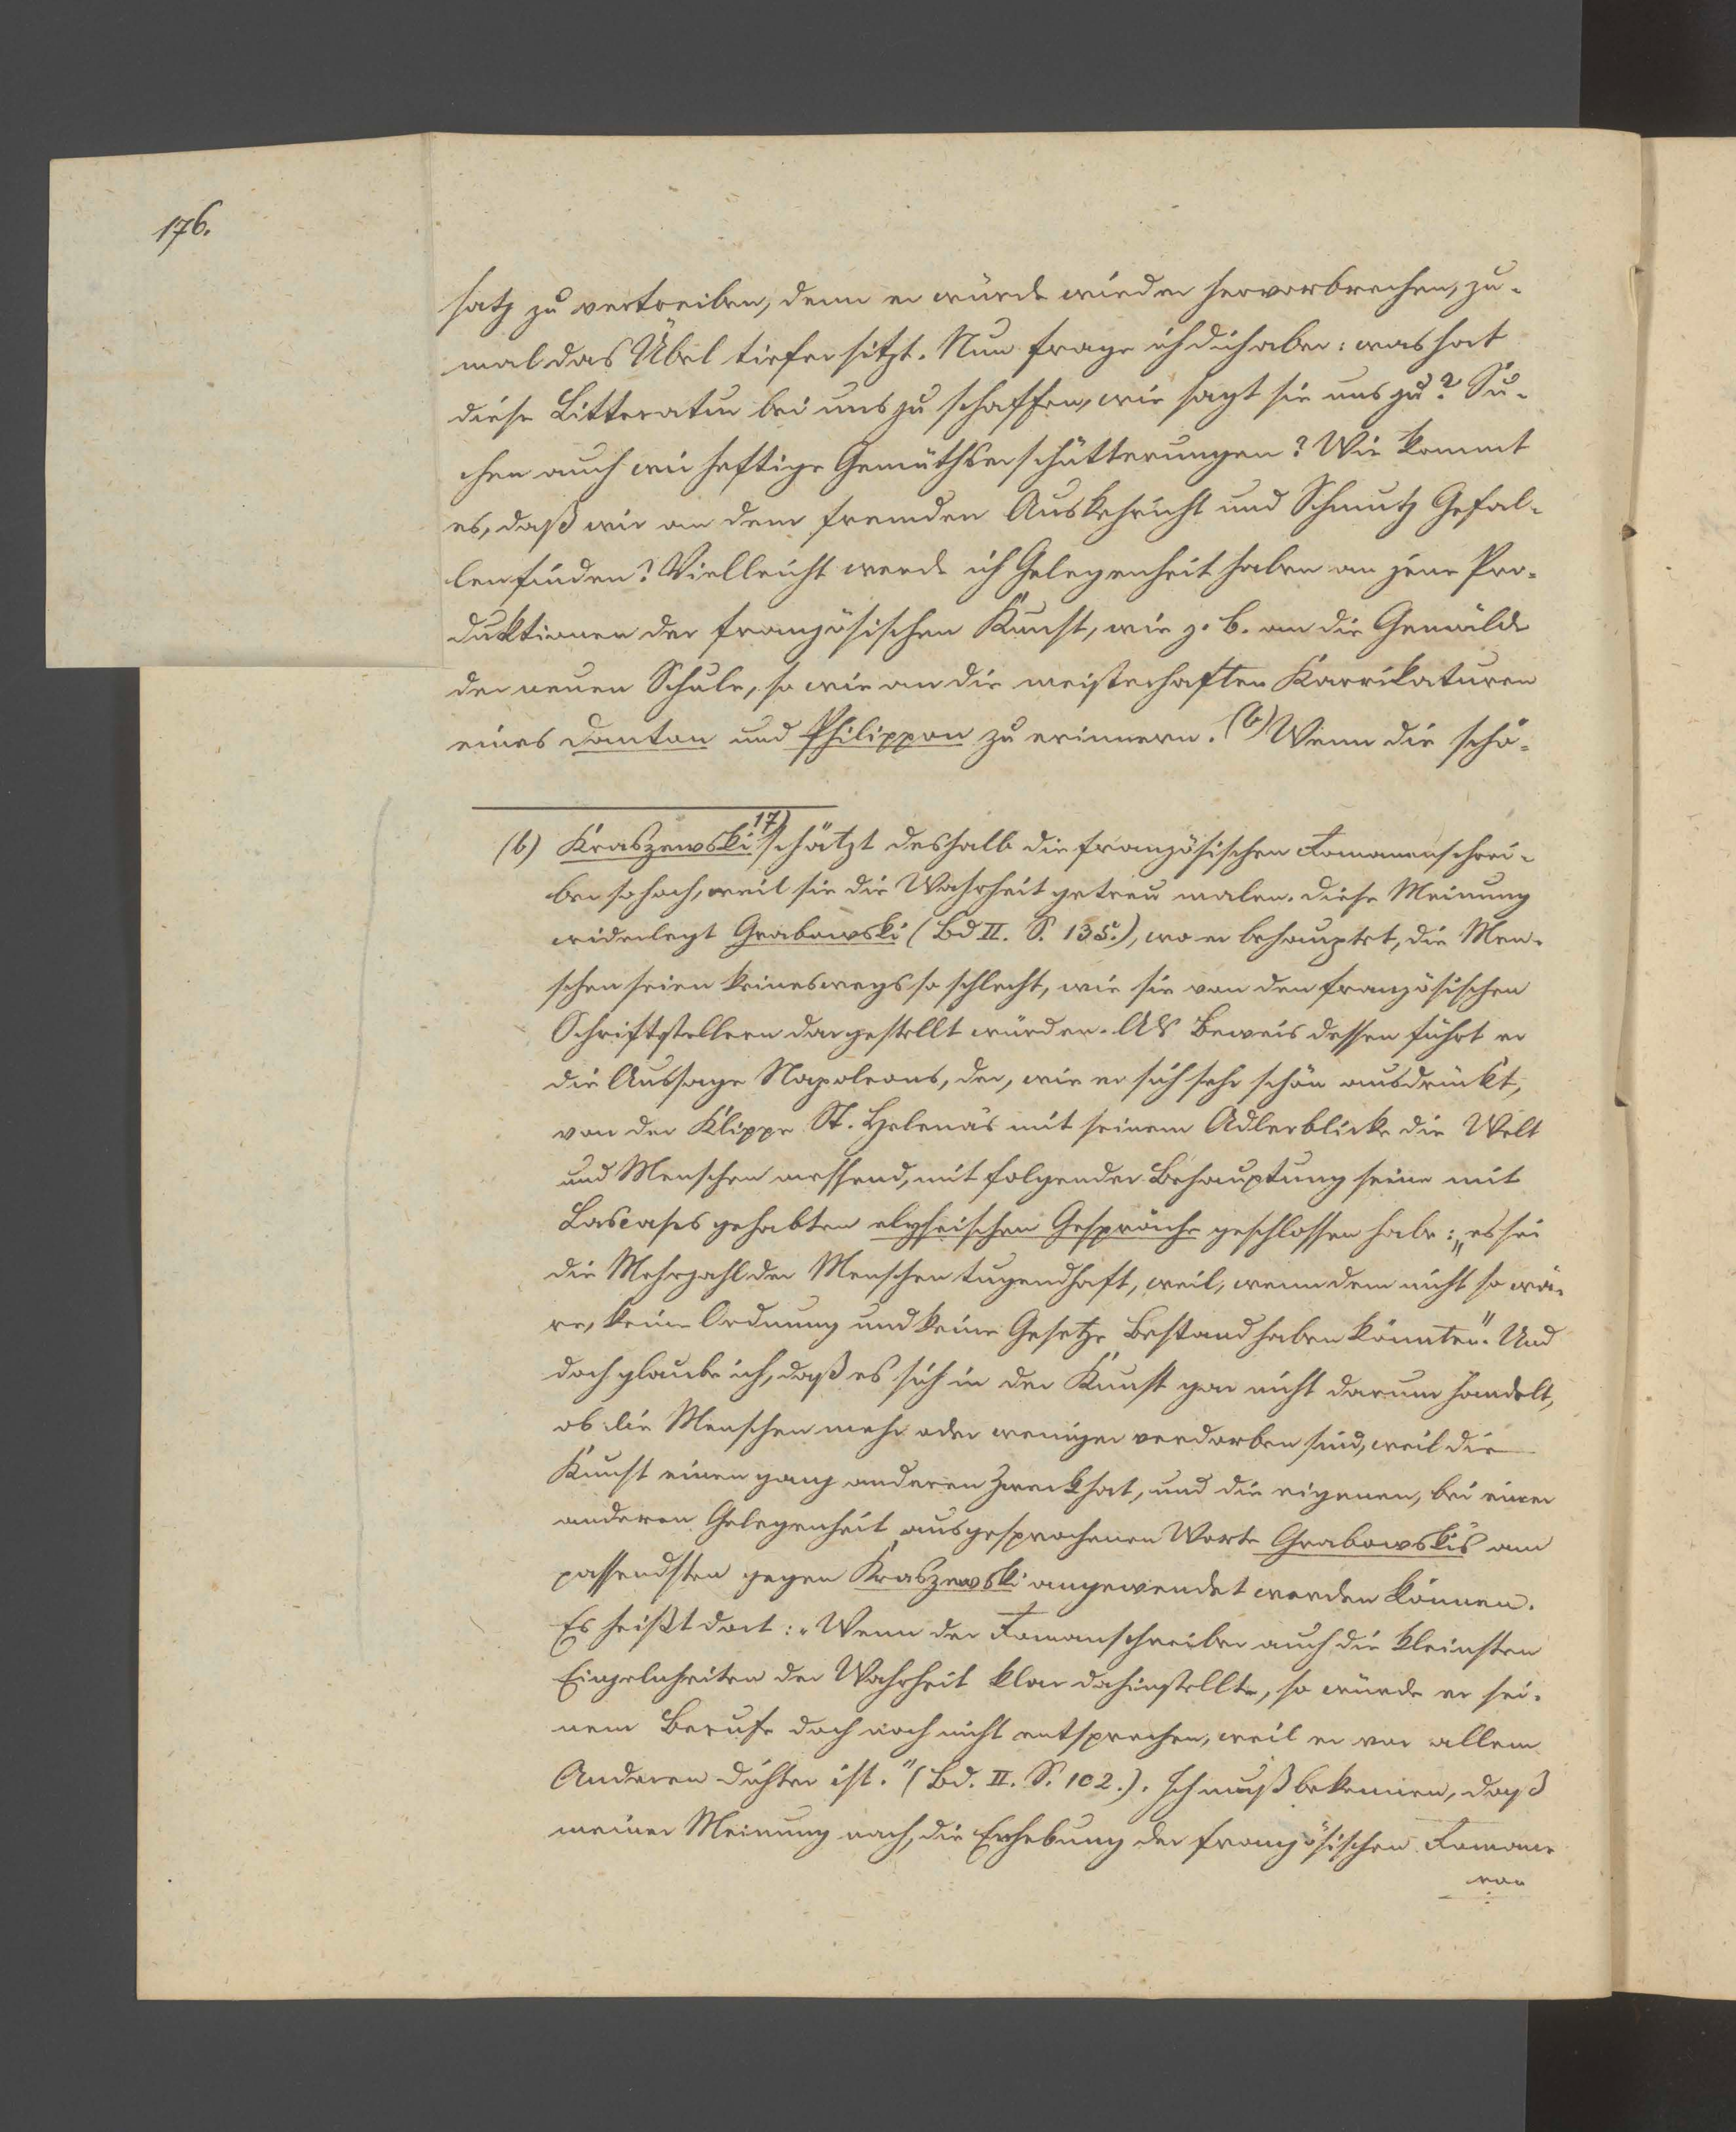 176.
satz zu vertreiben, denn er würde wieder hervorbrechen, zu-
mal das Übel tiefer sitzt. Nun frage ich dich aber: was hat
diese Litteratur bei uns zu schaffen, wie sagt sie uns zu? Su-
chen auch wir heftige Gemüthserschütterungen? Wie kommt
es, daß wir an dem fremden Auskehricht und Schmutz Gefal-
len finden? Vielleicht werde ich Gelegenheit haben an jene Pro-
duktionen der französischen Kunst, wie z. b. an die Gemälde
der neuen Schule, so wie an die meisterhaften Karrikaturen
eines Dantan und Philippon zu erinnern. (b) Wenn die schö-
(b) Kraszewski 17) schätzt deshalb die französischen Romanenschrei-
ber so hoch, weil sie die Wahrheit getreu malen. Diese Meinung
widerlegt Grabowski (Bd II. S. 135.), wo er behauptet, die Men-
schen seien keineswegs so schlecht, wie sie von den französischen
Schriftstellern dargestellt würden. Als Beweis dessen führt er
die Aussage Napoleons, der, wie er sich sehr schön ausdrückt,
von der Klippe St. Helenas mit seinem Adlerblicke die Welt
und Menschen messend, mit folgender Behauptung seine mit
Lascases gehabten elyseischen Gespräche geschlossen habe: „es sei
die Mehrzahl der Menschen tugendhaft, weil, wenn dem nicht so wä-
re, keine Ordnung und keine Gesetze Bestand haben könnten". Und
doch glaube ich, daß es sich in der Kunst gar nicht darum handelt,
ob die Menschen mehr oder weniger verdorben sind, weil die
Kunst einen ganz anderen Zweck hat, und die eigenen, bei einer
anderen Gelegenheit ausgesprochenen Worte Grabowskis am
passendsten gegen Kraszewski angewendet werden können.
Es heißt dort: „Wenn der Romanschreiber auch die kleinsten
Einzelnheiten der Wahrheit klar dahinstellte, so würde er sei-
nem Berufe doch noch nicht entsprechen, weil er vor allem
Anderen Dichter ist." (Bd. II. S. 102.). Ich muß bekennen, daß
meiner Meinung nach, die Erhebung der französischen Romane
von